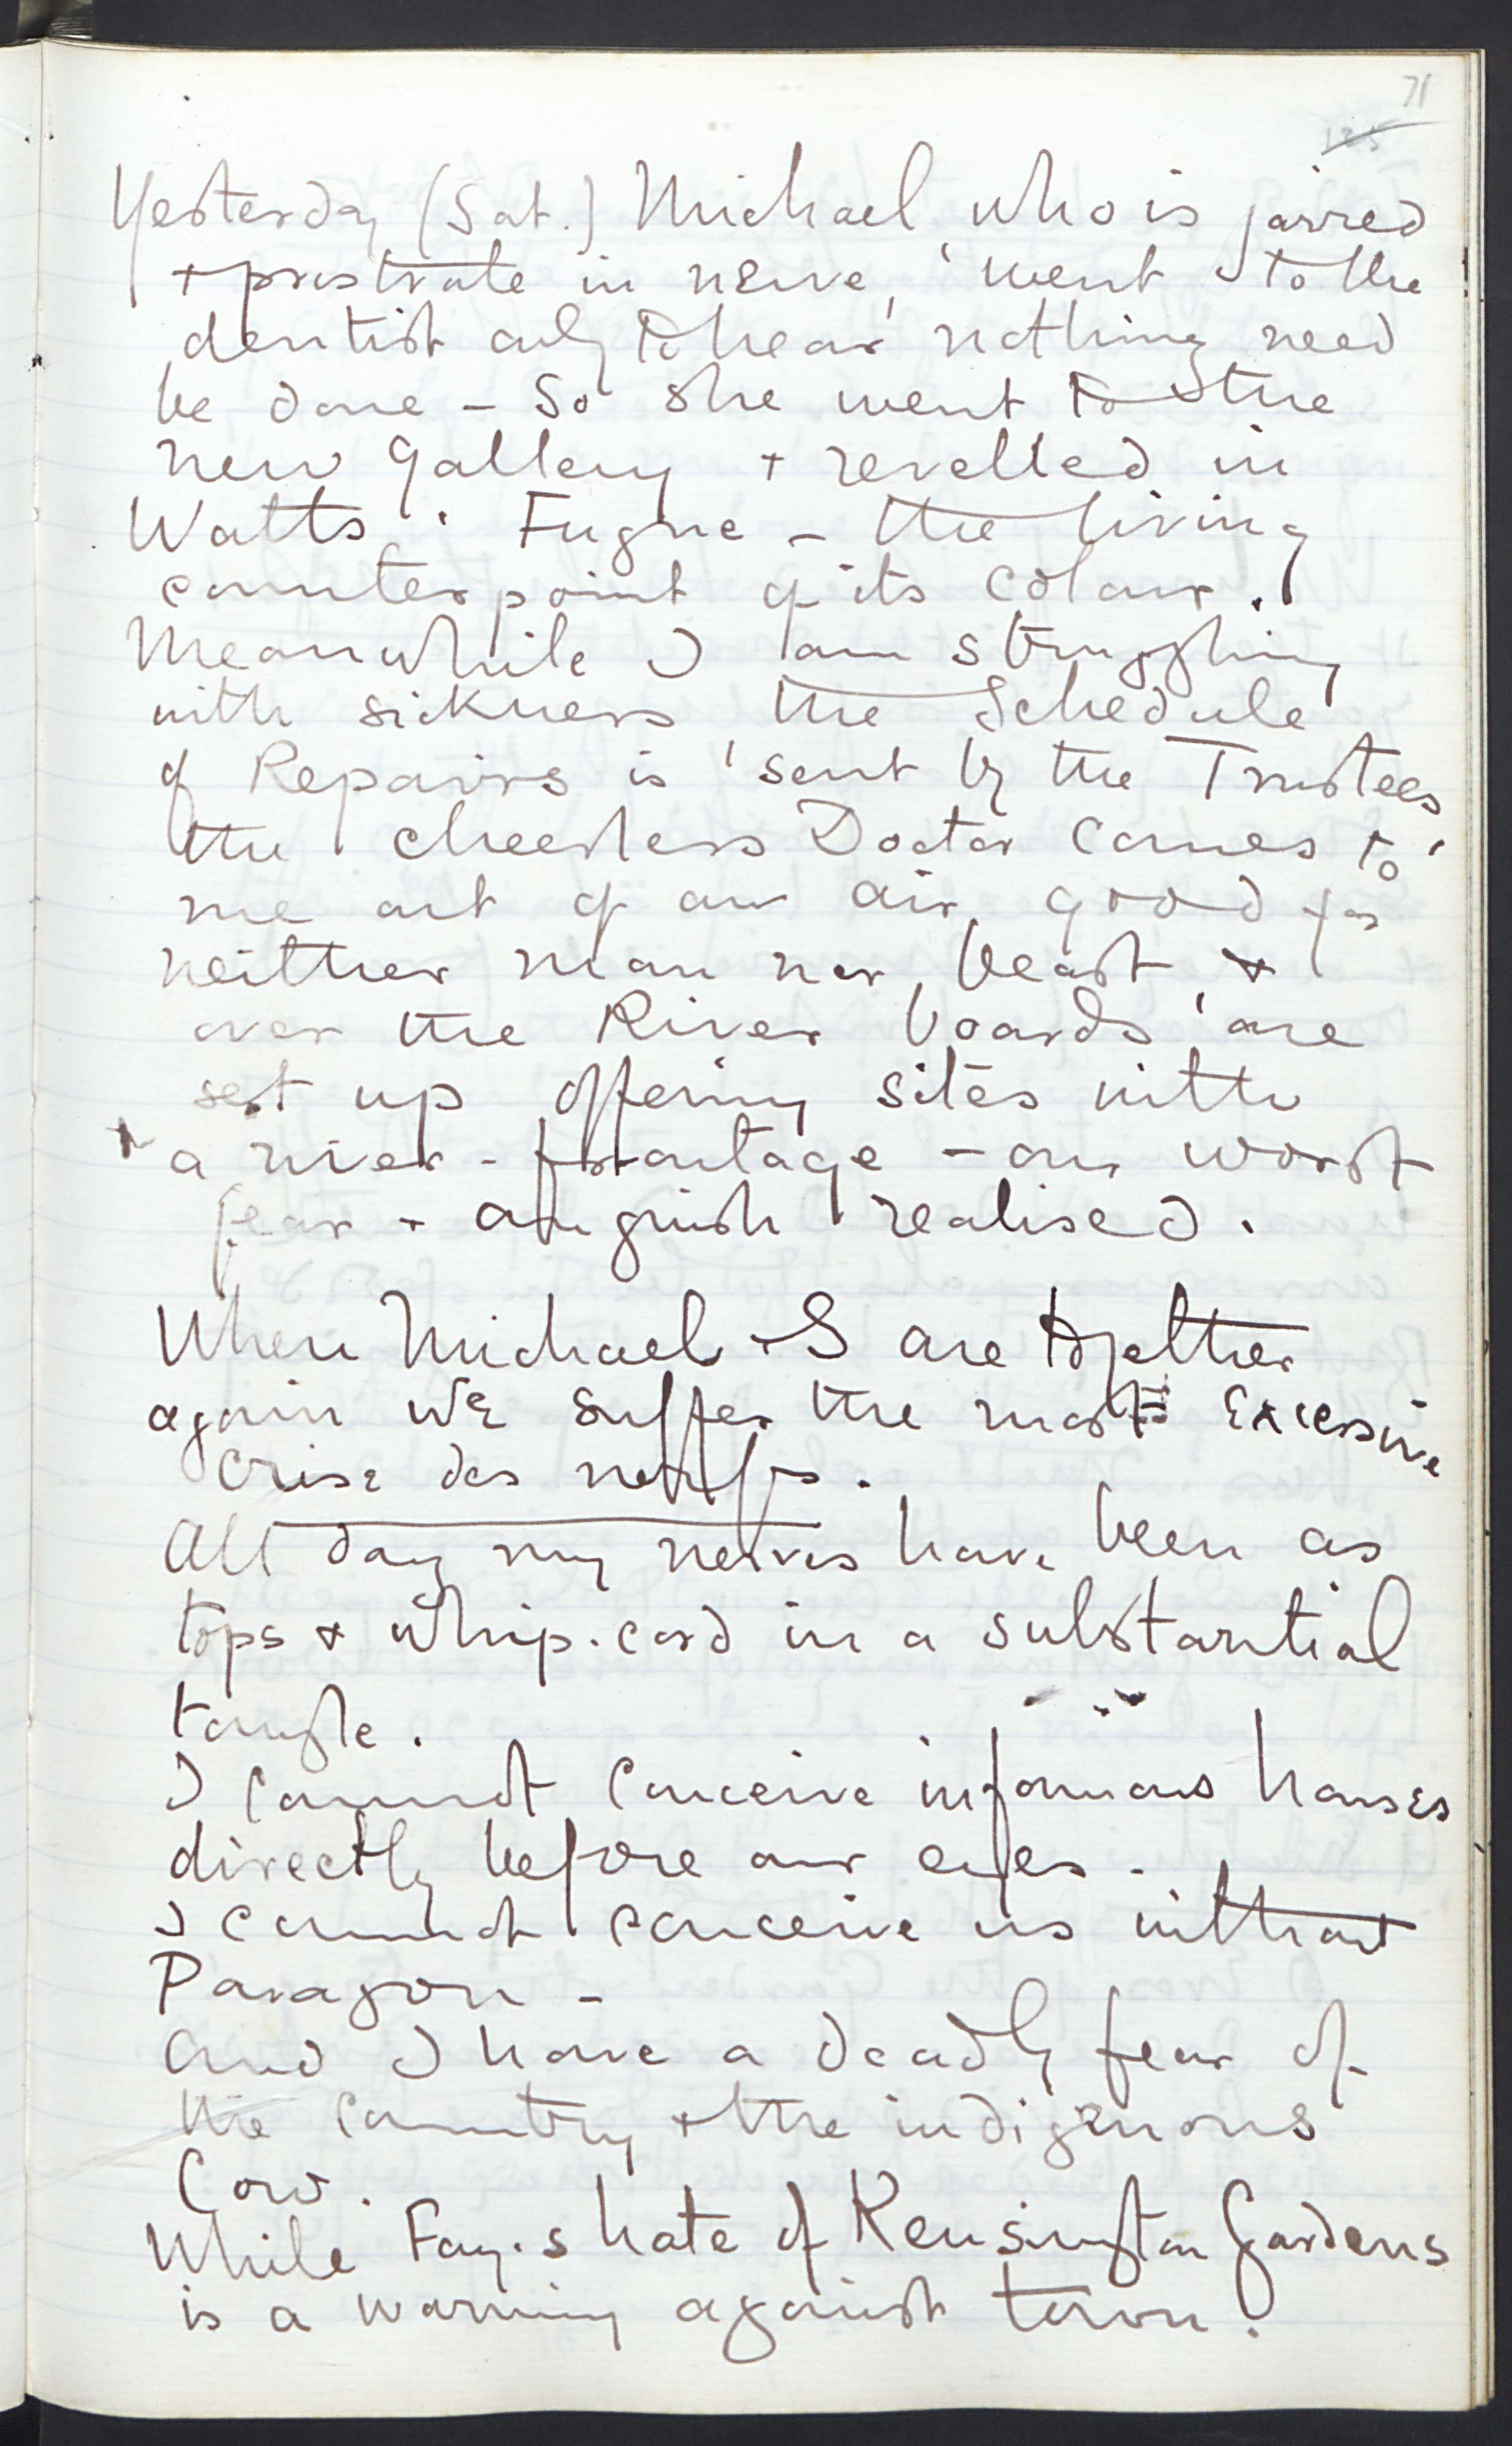 71
125
Yesterday (Sat.) Michael, who is jarred
+ prostrate in nerve, went to the
dentist only to hear nothing need
be done – So she went to the
new Gallery + revelled in
Watts' Fugue – the living
counterpoint of its colour.
Meanwhile I am struggling
with sickness, the Schedule
of Repairs is sent by the Trustees,
the cheerless Doctor comes to
me out of an air good for
neither man nor beast, +
over the River boards are
set up offering sites with
a river-frontage – our worst
fear + anguish realised.
When Michael + I are together
again we suffer the most excessive
crise des nerfs.
All day my nerves have been as
tops + whip-cord in a substantial
tangle.
I cannot conceive infamous houses
directly before our eyes.
I cannot conceive us without
Paragon –
And I have a deadly fear of
the country + the indigenous
Cow.
While Fay's hate of Kensington Gardens
is a warning against town.